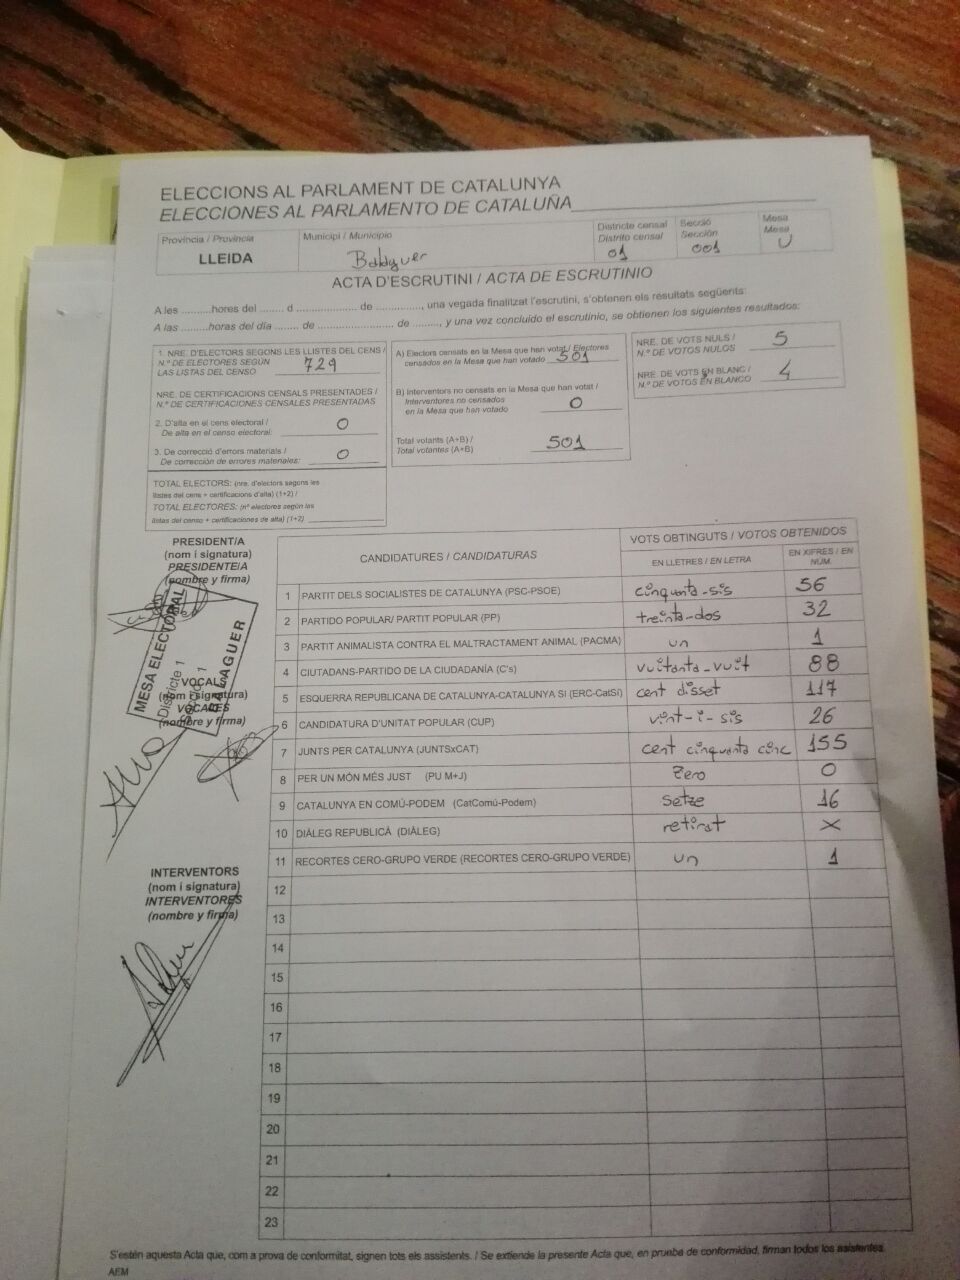 ELECCIONS AL PARLAMENT DE CATALUNYA
ELECCIONES AL PARLAMENTO DE CATALUÑA
Província / Provincia
LLEIDA
Municipi / Municipio
Balaguer
Districte censal
Distrito censal
01
Secció
Sección
001
Mesa
Mesa
U
ACTA D'ESCRUTINI / ACTA DE ESCRUTINIO
A les ..........hores del ....... d ..................... de .............., una vegada finalitzat l'escrutini, s'obtenen els resultats següents:
A las ..........horas del día ........ de ......................... de ........., y una vez concluido el escrutinio, se obtienen los siguientes resultados:
1. NRE. D'ELECTORS SEGONS LES LLISTES DEL CENS /
N.º DE ELECTORES SEGÚN
LAS LISTAS DEL CENSO 729
NRE. DE CERTIFICACIONS CENSALS PRESENTADES /
N.º DE CERTIFICACIONES CENSALES PRESENTADAS
2. D'alta en el cens electoral /
De alta en el censo electoral: 0
3. De correcció d'errors materials /
De corrección de errores materiales: 0
TOTAL ELECTORS: (nre. d'electors segons les
llistes del cens + certificacions d'alta) (1+2) /
TOTAL ELECTORES: (nº electores según las
listas del censo + certificaciones de alta) (1+2)
A) Electors censats en la Mesa que han votat / Electores
censados en la Mesa que han votado 501
B) Interventors no censats en la Mesa que han votat /
Interventores no censados
en la Mesa que han votado 0
Total votants (A+B) /
Total votantes (A+B) 501
NRE. DE VOTS NULS /
N.º DE VOTOS NULOS 5
NRE. DE VOTS EN BLANC /
N.º DE VOTOS EN BLANCO 4
PRESIDENT/A
(nom i signatura)
PRESIDENTE/A
(nombre y firma)
MESA ELECTORAL
Districte 1
BALAGUER
VOCALS
(nom i signatura)
VOCALES
(nombre y firma)
INTERVENTORS
(nom i signatura)
INTERVENTORES
(nombre y firma)
CANDIDATURES / CANDIDATURAS
VOTS OBTINGUTS / VOTOS OBTENIDOS
EN LLETRES / EN LETRA
EN XIFRES / EN NÚM.
1 PARTIT DELS SOCIALISTES DE CATALUNYA (PSC-PSOE) cinquanta-sis 56
2 PARTIDO POPULAR/ PARTIT POPULAR (PP) treinta-dos 32
3 PARTIT ANIMALISTA CONTRA EL MALTRACTAMENT ANIMAL (PACMA) un 1
4 CIUTADANS-PARTIDO DE LA CIUDADANÍA (C's) vuitanta-vuit 88
5 ESQUERRA REPUBLICANA DE CATALUNYA-CATALUNYA SÍ (ERC-CatSí) cent disset 117
6 CANDIDATURA D'UNITAT POPULAR (CUP) vint-i-sis 26
7 JUNTS PER CATALUNYA (JUNTSxCAT) cent cinquanta cinc 155
8 PER UN MÓN MÉS JUST (PU M+J) Zero 0
9 CATALUNYA EN COMÚ-PODEM (CatComú-Podem) setze 16
10 DIÀLEG REPUBLICÀ (DIÀLEG) retirat X
11 RECORTES CERO-GRUPO VERDE (RECORTES CERO-GRUPO VERDE) un 1
12
13
14
15
16
17
18
19
20
21
22
23
S'estén aquesta Acta que, com a prova de conformitat, signen tots els assistents. / Se extiende la presente Acta que, en prueba de conformidad, firman todos los asistentes.
AEM